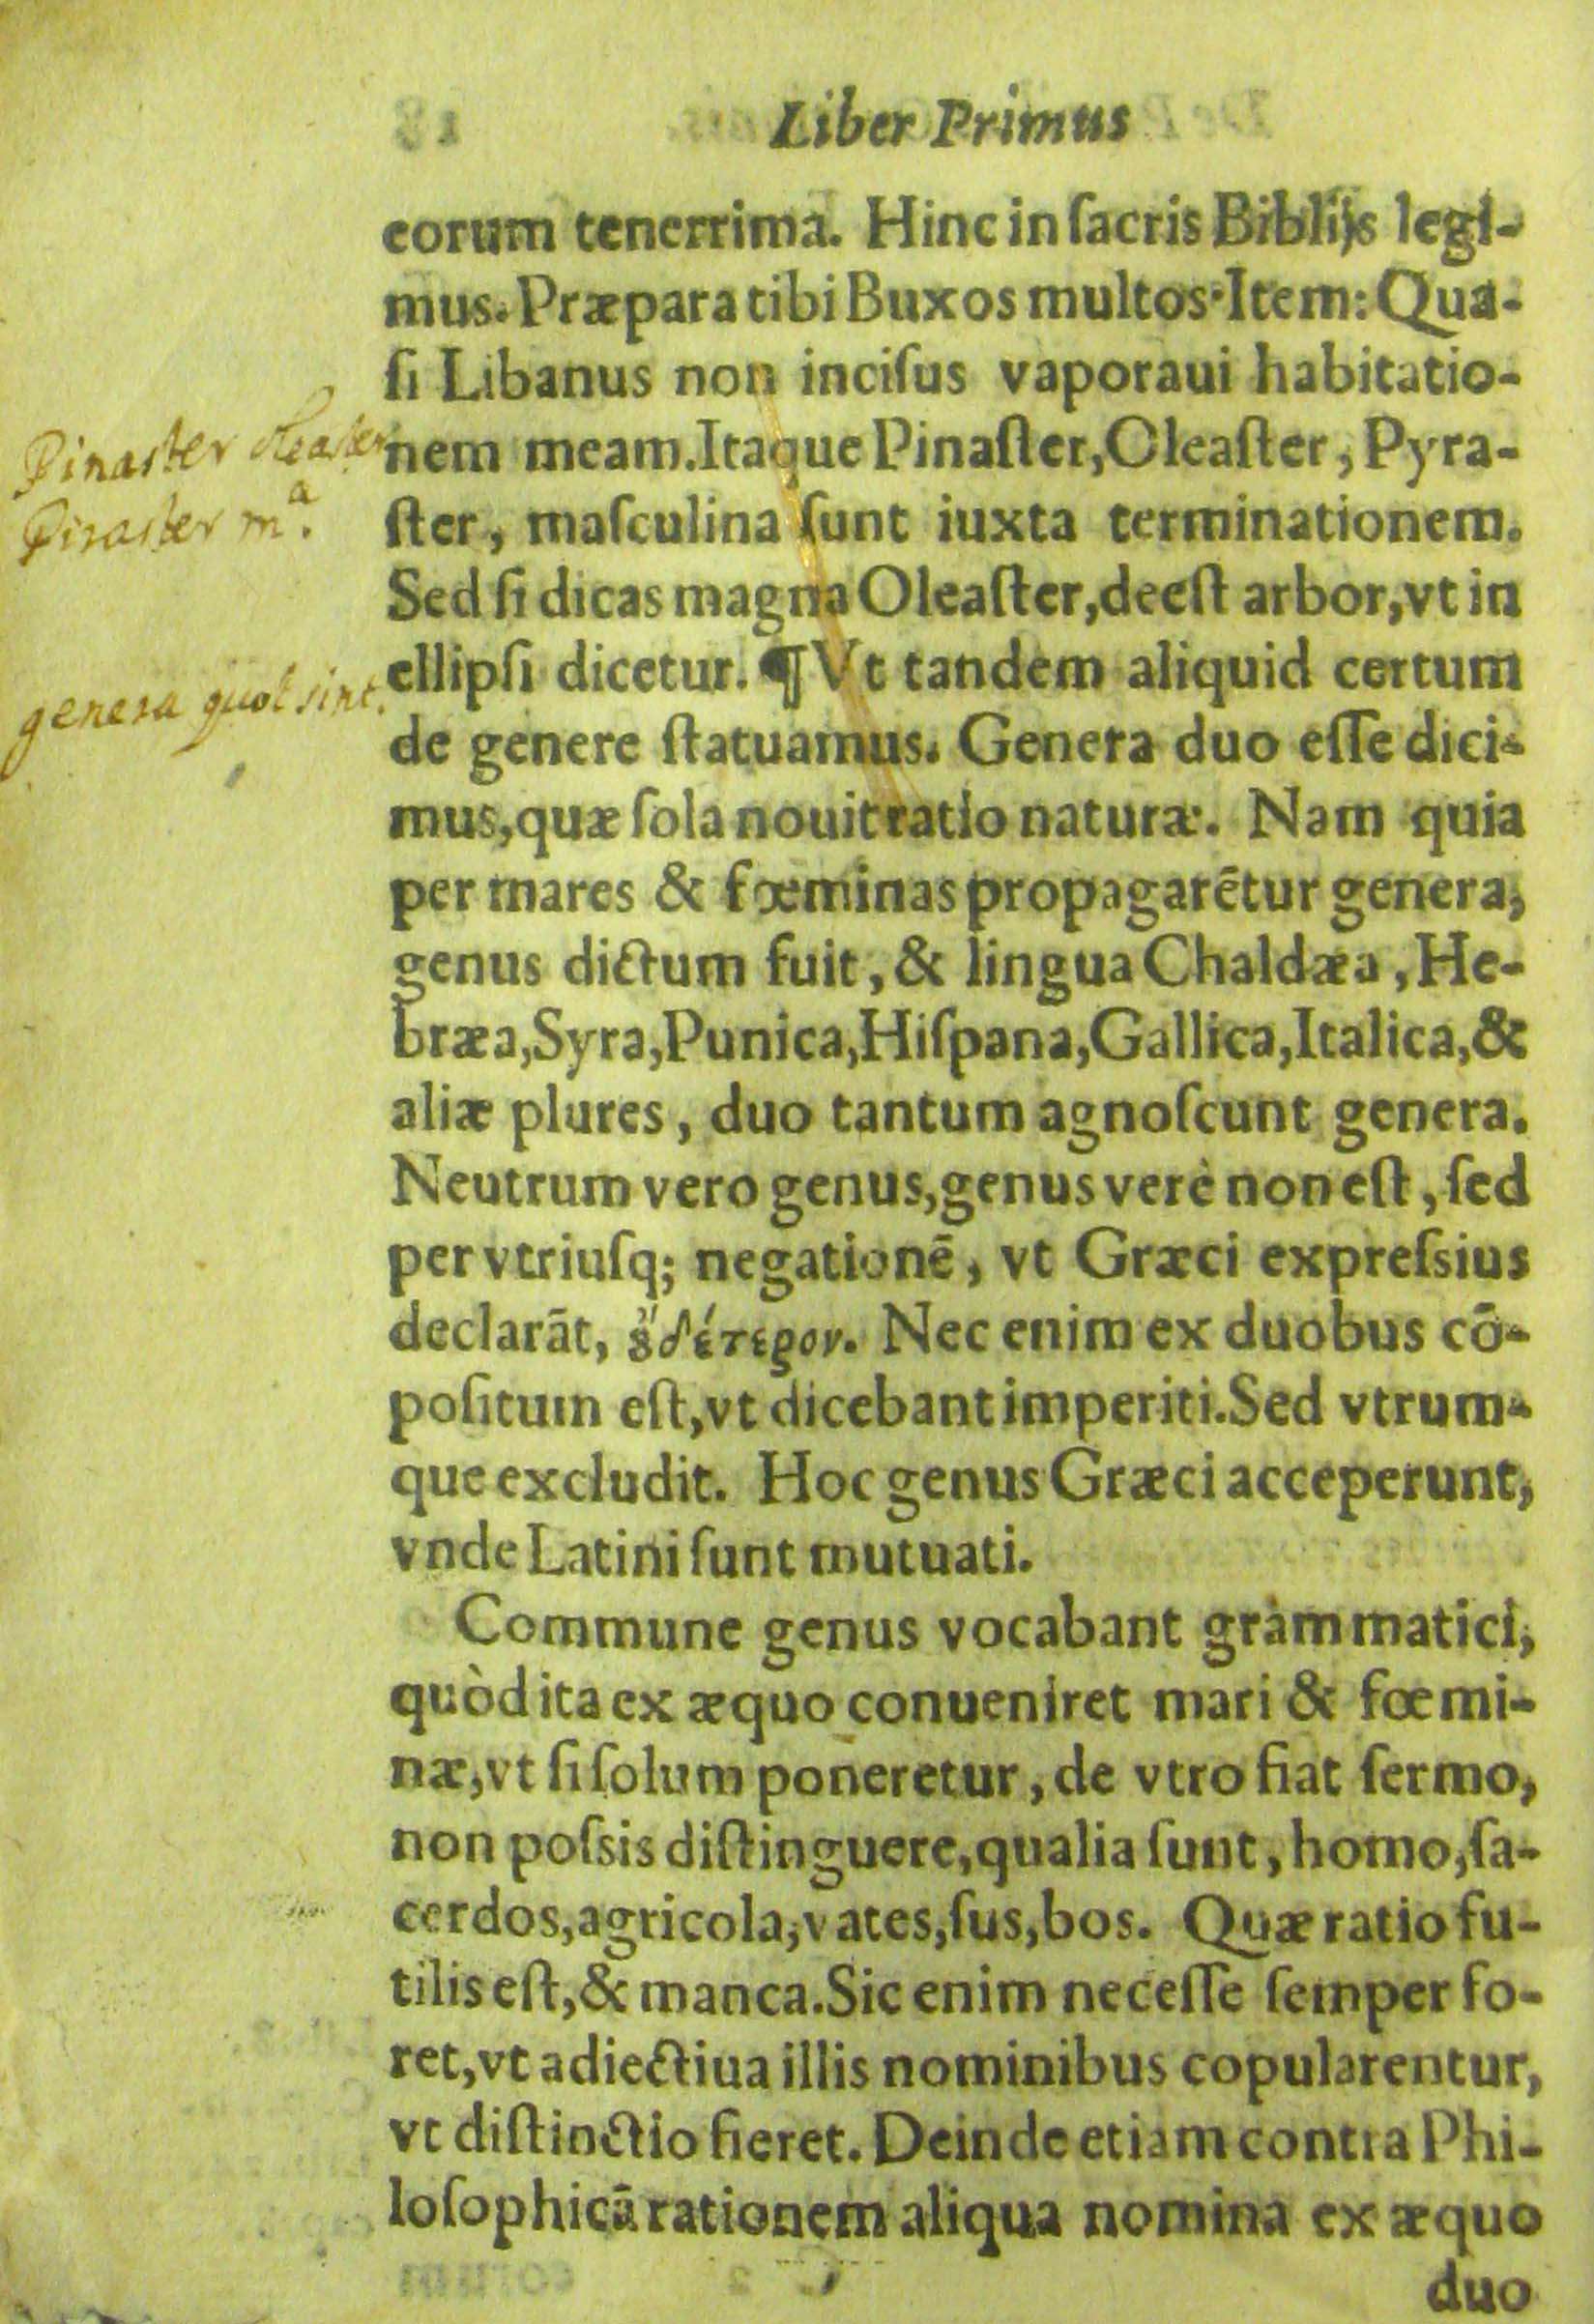 Liber Primus
eorum tenerrima. Hinc in ſacris Biblijs legi-
mus. Præpara tibi Buxos multos. Item: Qua-
ſi Libanus non inciſus vaporaui habitatio-
nem meam. Itaque Pinaſter, Oleaſter, Pyra-
ſter, maſculina ſunt iuxta terminationem.
Sed ſi dicas magna Oleaſter, deeſt arbor, vt in
ellipſi dicetur. ¶ Vt tandem aliquid certum
de genere ſtatuamus. Genera duo eſſe dici-
mus, quæ ſola nouit ratio naturæ. Nam quia
per mares & fœminas propagarētur genera,
genus dictum fuit, & lingua Chaldæa, He-
bræa, Syra, Punica, Hiſpana, Gallica, Italica, &
aliæ plures, duo tantum agnoſcunt genera.
Neutrum vero genus, genus verè non eſt, ſed
per vtriuſq; negationē, vt Græci expreſsius
declarāt, ȣ̓δέτερον. Nec enim ex duobus cō-
poſitum eſt, vt dicebant imperiti. Sed vtrum-
que excludit. Hoc genus Græci acceperunt,
vnde Latini ſunt mutuati.
Commune genus vocabant grammatici,
quòd ita ex æquo conueniret mari & fœmi-
næ, vt ſi ſolum poneretur, de vtro fiat ſermo,
non poſsis diſtinguere, qualia ſunt, homo, ſa-
cerdos, agricola, vates, ſus, bos. Quæ ratio fu-
tilis eſt, & manca. Sic enim neceſſe ſemper fo-
ret, vt adiectiua illis nominibus copularentur,
vt diſtinctio fieret. Deinde etiam contra Phi-
loſophicā rationem aliqua nomina ex æquo
duo
Pinaster oleaster
Piraster mª.
genera quot sint.